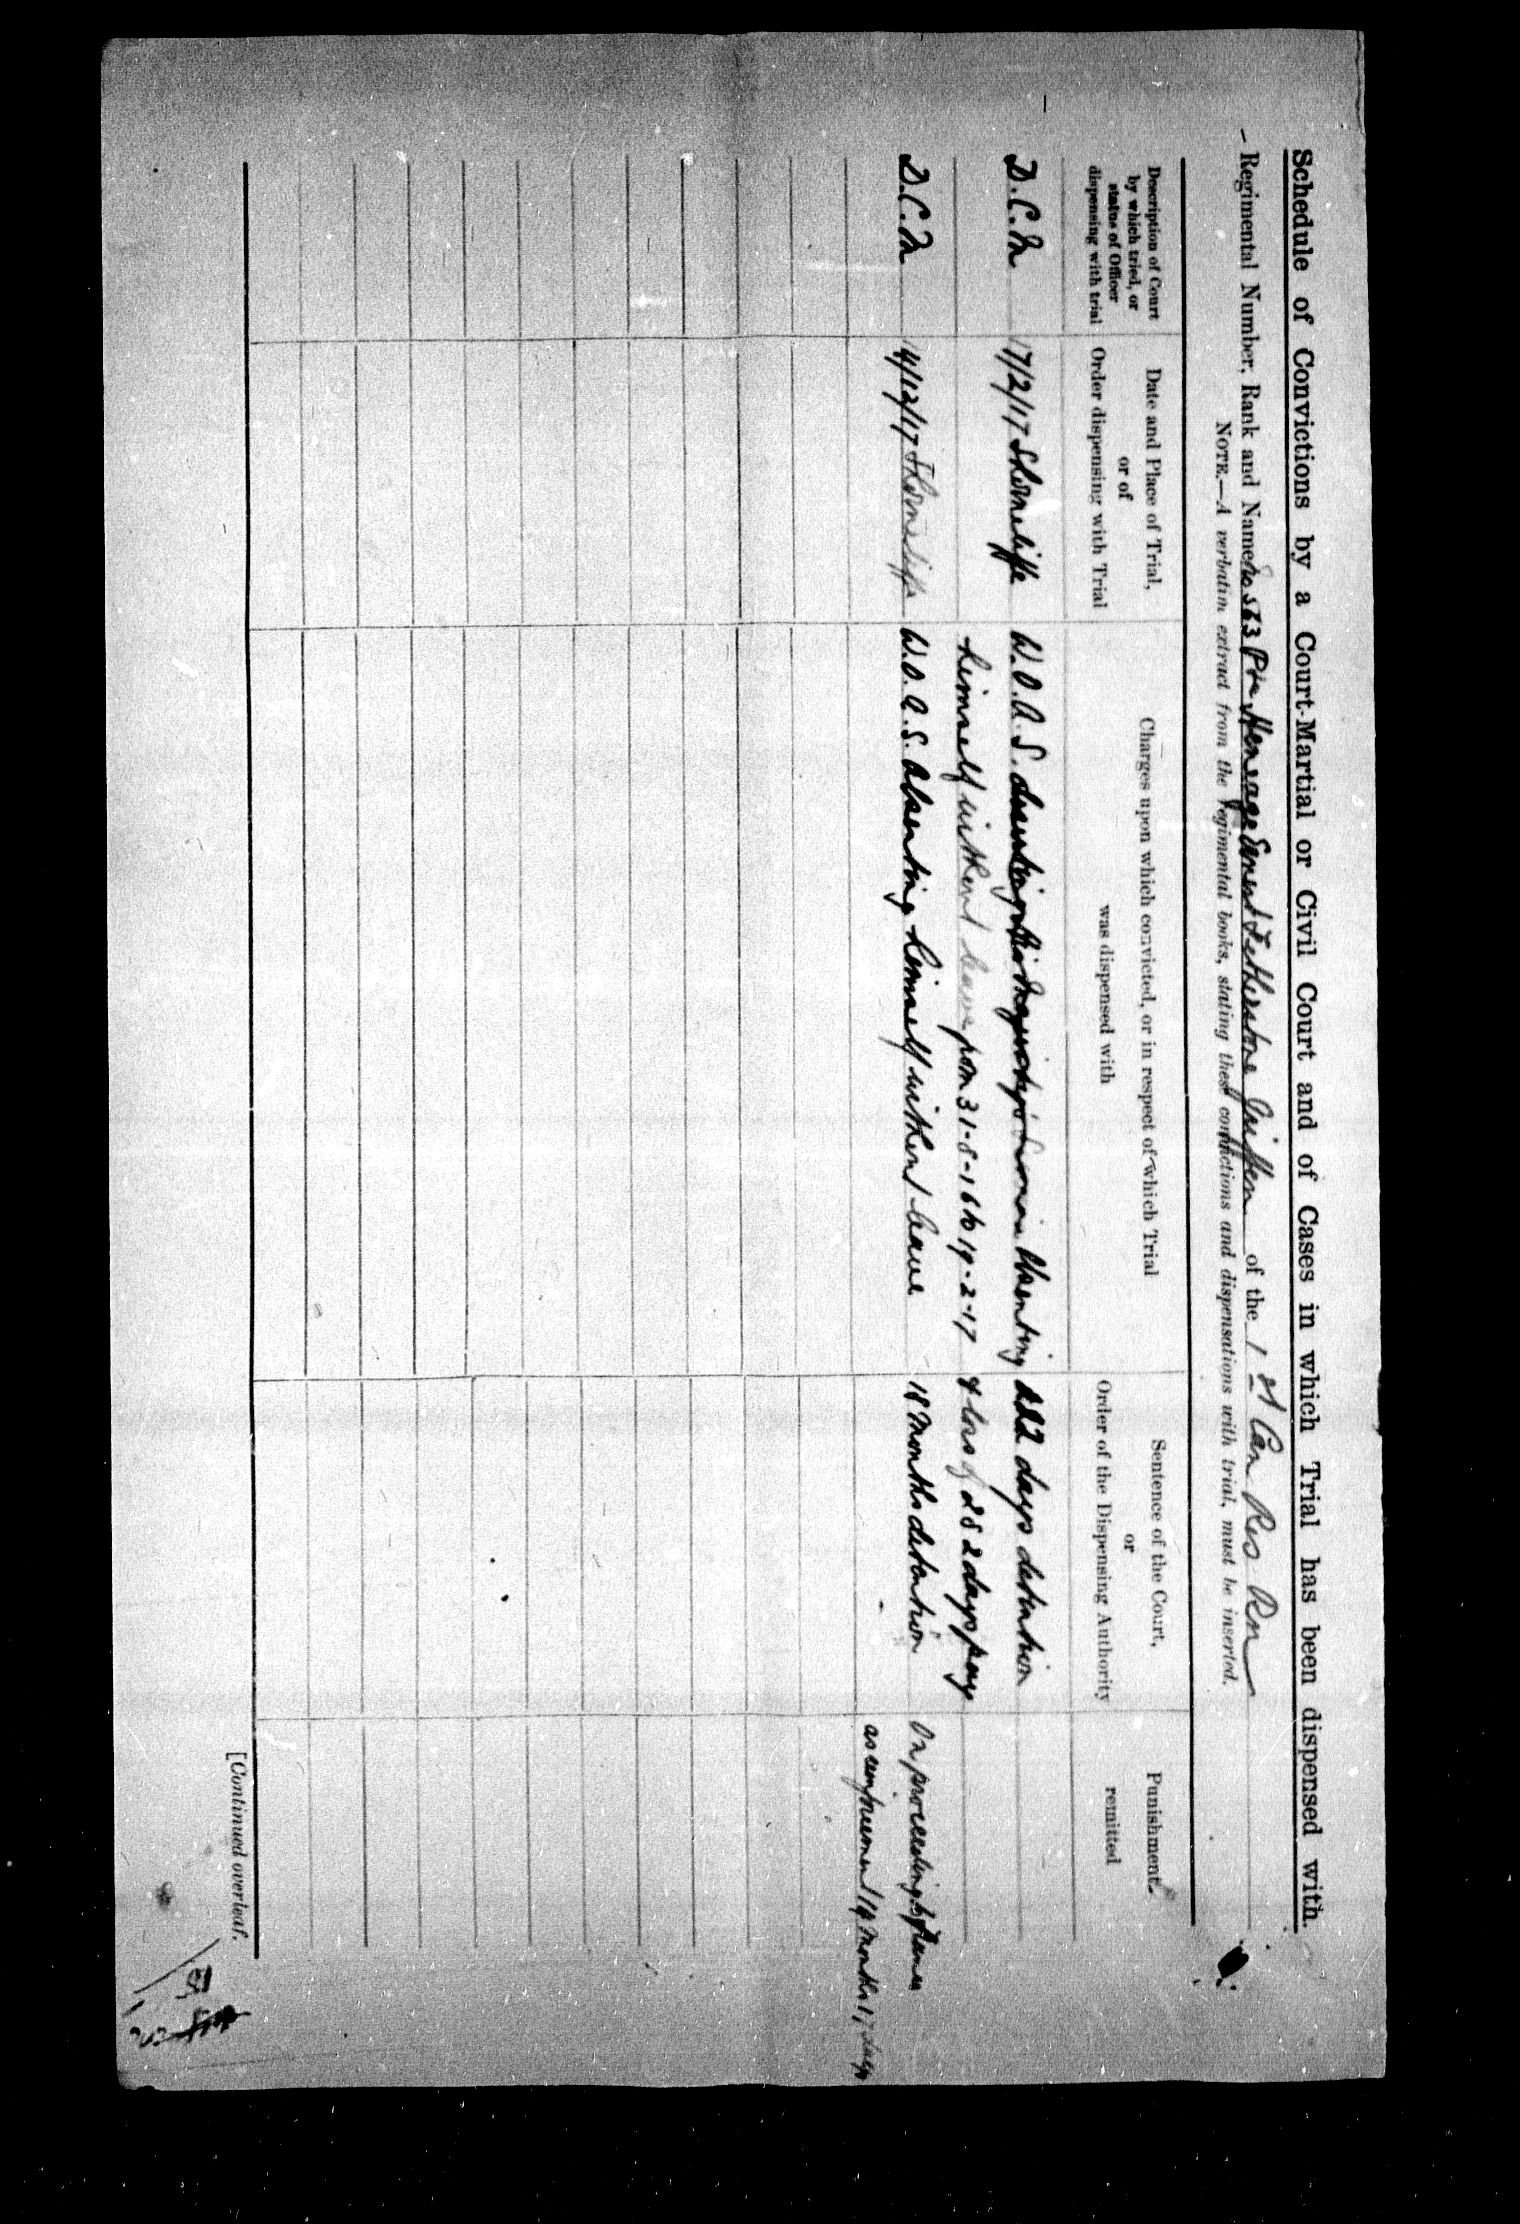 Schedule of Convictions by a Court-Martial or Civil Court and of Cases in which Trial has been dispensed with.
Regimental Number, Rank and Name Pte Heneage Ernest Fetherstone Griffen of the 1st Can Res Rn
NOTE.—A verbatim extract from the regimental books, stating these convictions and dispensations with trial, must be inserted.
Description of Court by which tried, or status of Officer dispensing with trial
Date and Place of Trial, or of Order dispensing with Trial
Charges upon which convicted, or in respect of which Trial was dispensed with
Sentence of the Court, or Order of the Dispensing Authority
Punishment remitted
D.C.M 17/2/17 Shorncliffe W.O.A.S. deserting His Majesty's Service Absenting days detention
himself without leave from 31-8-16 to 19-2-17 & loss of 282 days pay
D.C.M 14/12/17 Shorncliffe W.O.A.S. Absenting himself without leave 18 months detention On proceeding to France
as reinforcement 14 months 17 days
[Continued overleaf.